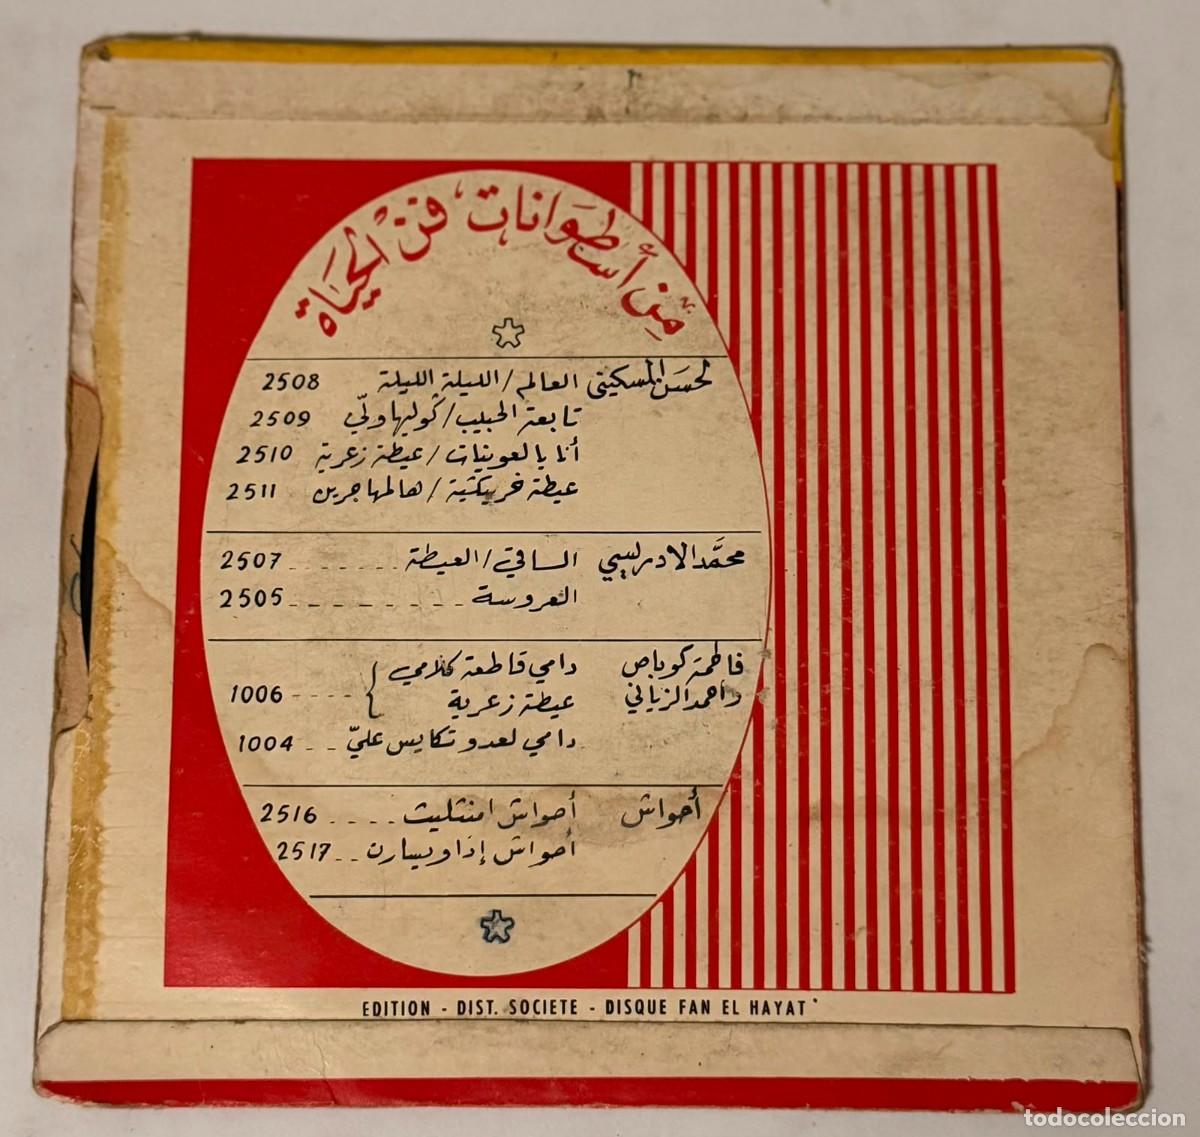 من أسطوانات فن الحياة
لحسن المسكيني العالم / الليلة الليلة 2508
تابعة الحبيب / گوليها ولّي 2509
أنا يا لعوينات / عيطة زعرية 2510
عيطة خريبكية / هالمهاجرين 2511
محمَّد الادريسي الساقي / العيطة ....... 2507
العروسة -------- 2505
فاطمة كوباص دامي قاطعة كلامي
واحمد الزياني عيطة زعرية } .... 1006
دامي لعدو تكايس عليّ .. 1004
أحواش أحواش امنتليت .... 2516
أحواش إداويسارن .. 2517
EDITION - DIST. SOCIETE - DISQUE FAN EL HAYAT
todocoleccion